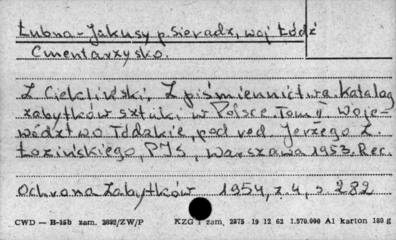 Łubna-Jakusy p. Sieradz, woj Łódź
Cmentarzysko.
Z Ciekliński, Z piśmiennictwa. Katalog
zabytków sztuki w Polsce. Tom II woje-
wództwo łódzkie, pod red Jerzego Z.
Łozińskiego, PIS, Warszawa 1953. Rec.
Ochrona Zabytków 1954, z. 4, s 282
CWD — B-15b zam. 2892/ZW/P KZG 1 zam. 2375 19 12 62 1.570.000 A1 karton 180 g